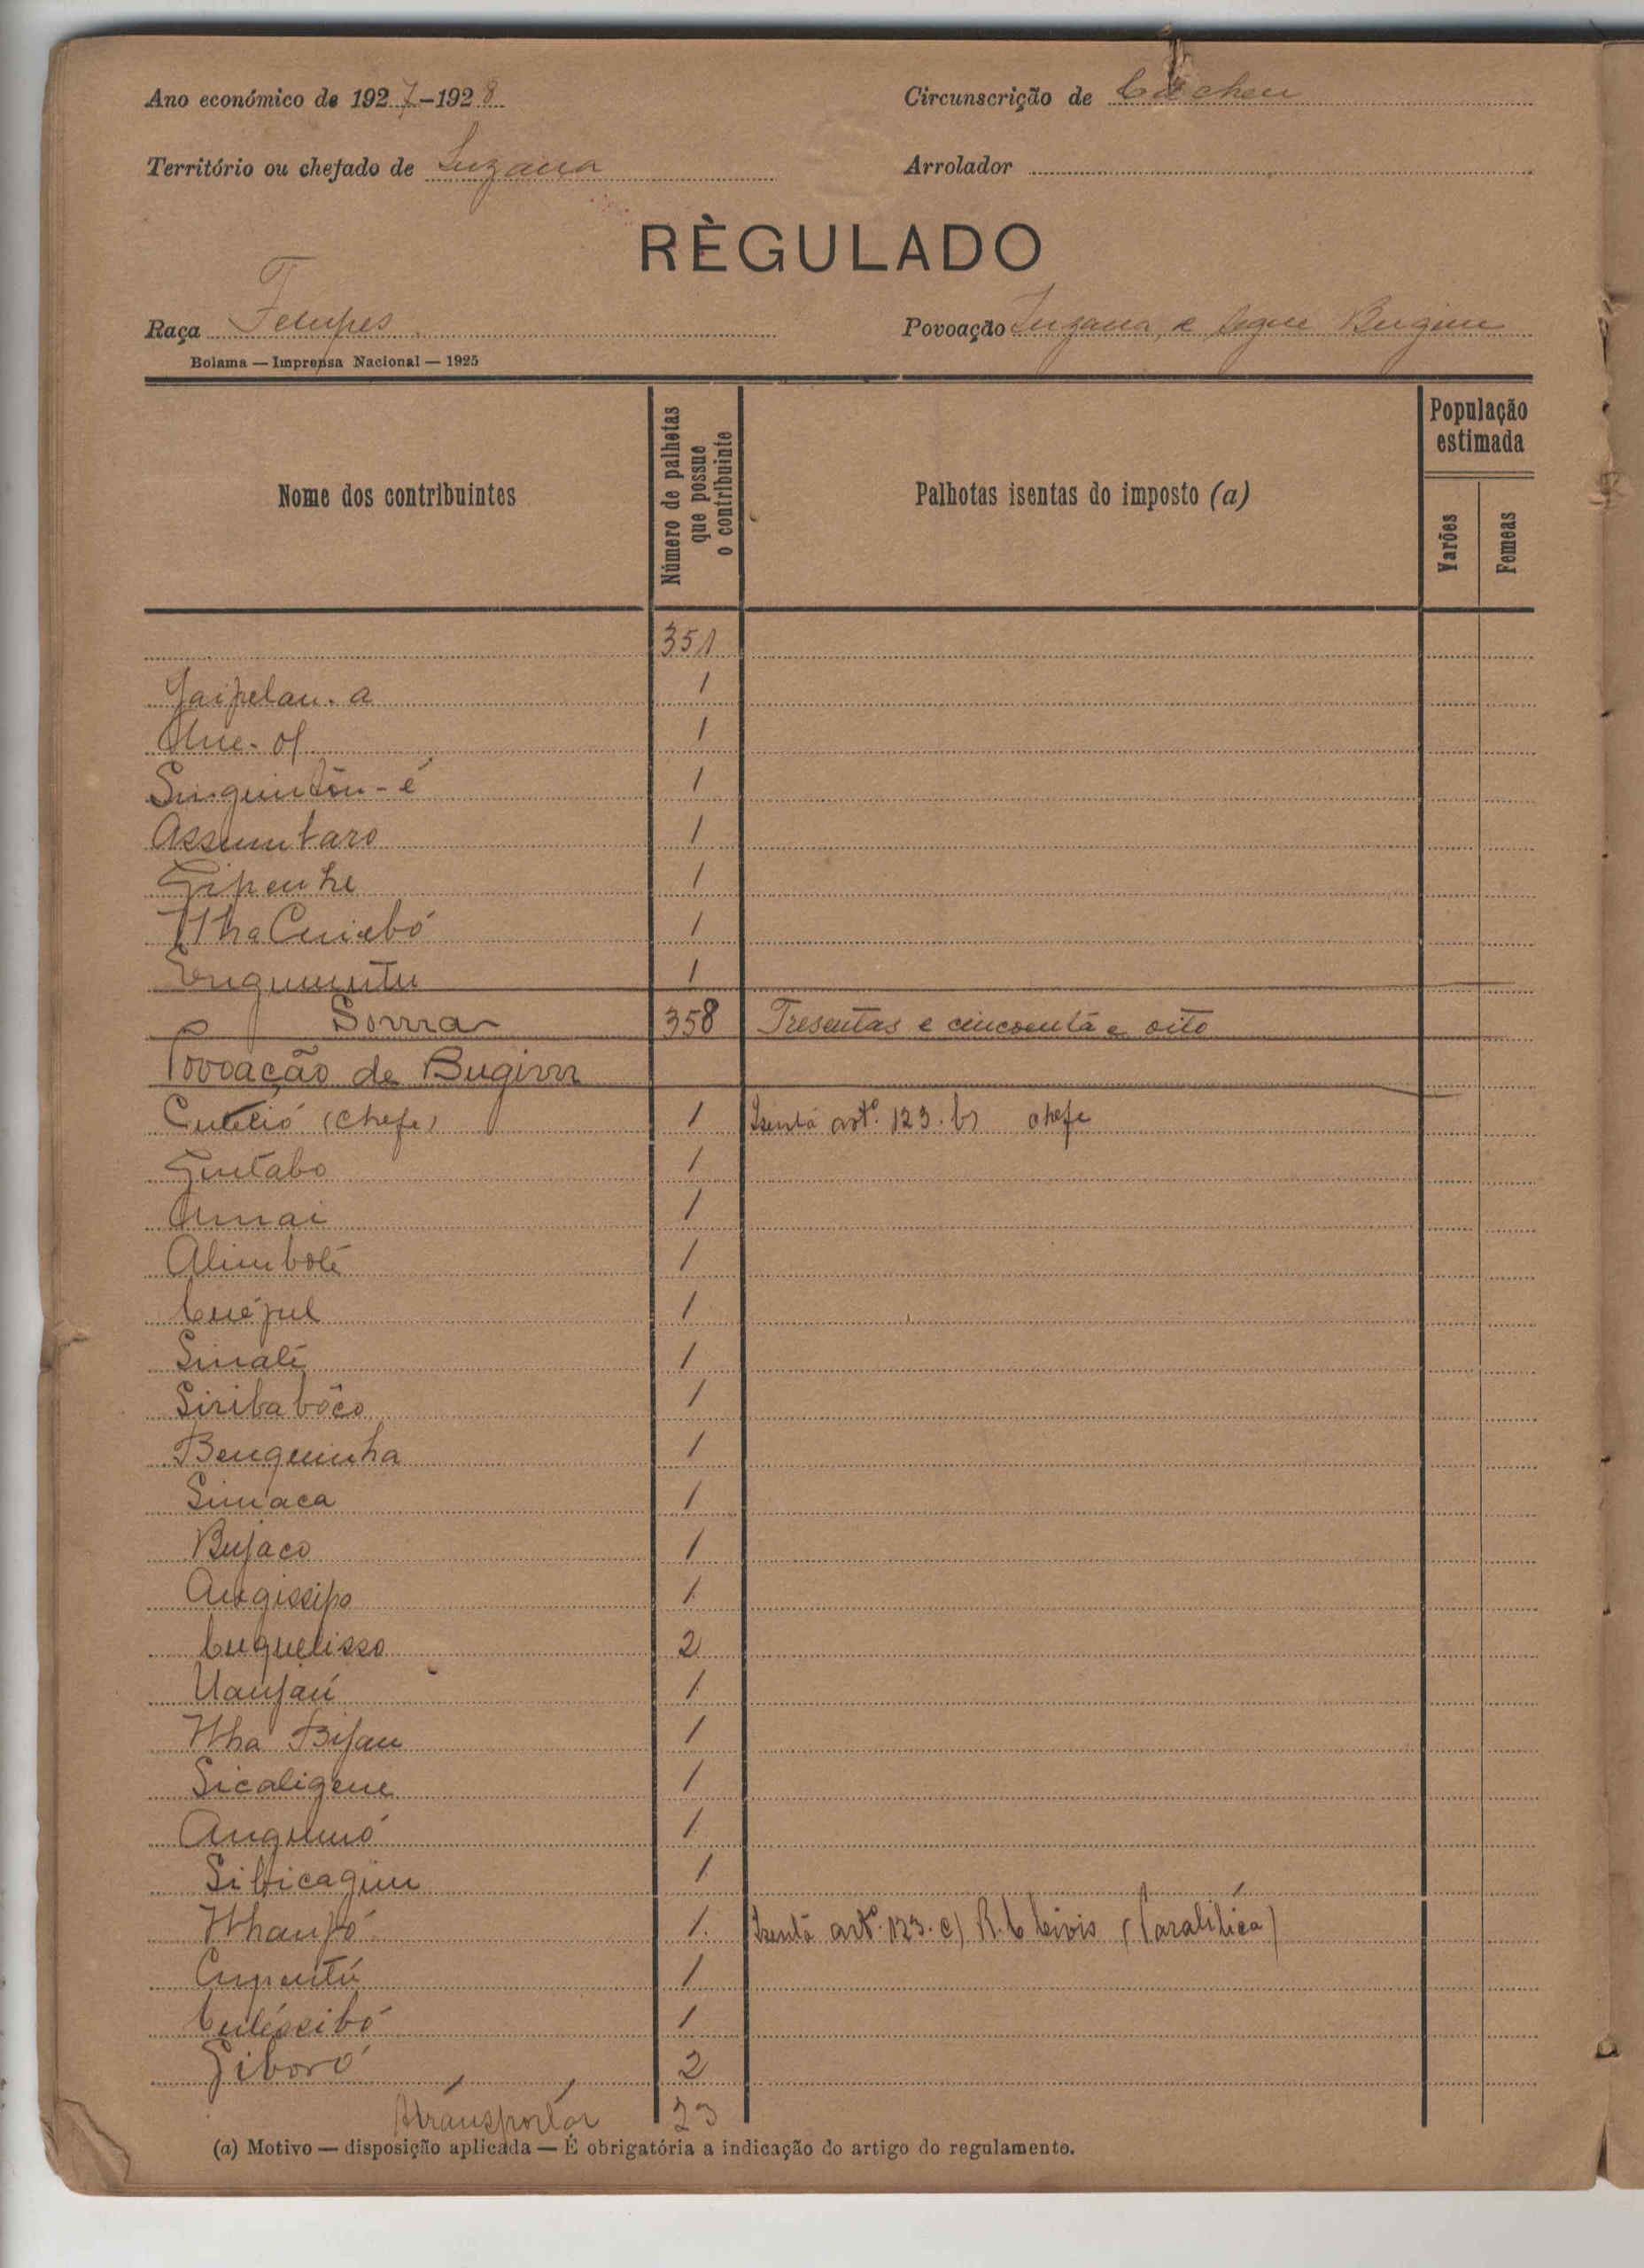 Ano económico de 1927-1928 Circunscrição de Cacheu
Território ou chefado de Suzana Arrolador
RÈGULADO
Raça Felupes Povoação Suzana e segue Bugim
Bolama — Imprensa Nacional — 1925
Nome dos contribuintes
Número de palhotas que possue o contribuinte
Palhotas isentas do imposto (a)
População estimada
Varões
Femeas
351
Jaipelau-a 1
1
1
Assumtaro 1
Gipenhe 1
Nha Cuiabó 1
1
Somma 358 Tresentas e cincoenta e oito
Povoação de Bugim
Culélió (chefe) 1 Isenta artº. 123. b) chefe
Guitabo 1
Amai 1
Alimbolé 1
Cuépul 1
Sinalé 1
Siribabôco 1
Benguinha 1
Simaca 1
Bujaco 1
Angissipo 1
Cuguelisso 2
Uanjaú 1
Nha Bijau 1
Sicaligene 1
Angumó 1
Sibicagim 1
Nhampó 1 Isenta artº. 123. c) R. C. Civis (Paralitica)
Cupentú 1
Culéssibó 1
Giboró 2
A transportar 23
(a) Motivo — disposição aplicada — É obrigatória a indicação do artigo do regulamento.